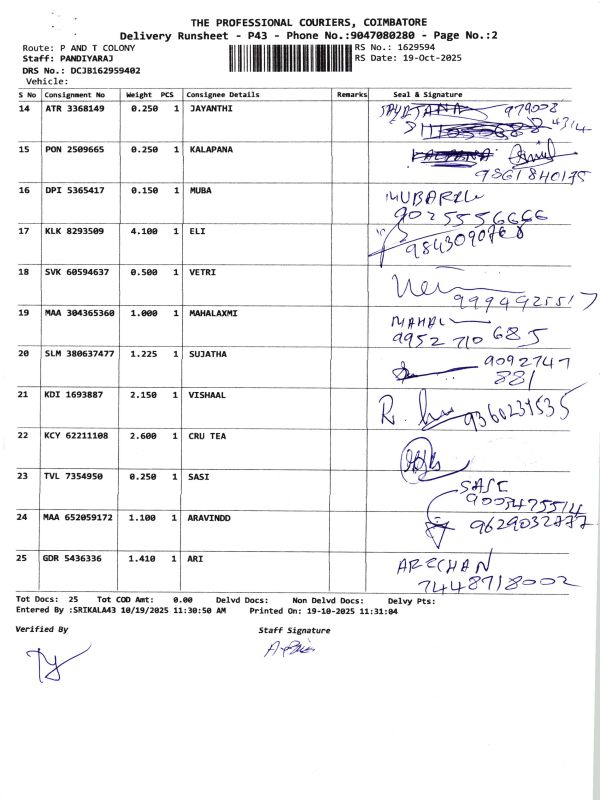 THE PROFESSIONAL COURIERS, COIMBATORE
Delivery Runsheet - P43 - Phone No.:9047080280 - Page No.:2
Route: P AND T COLONY
RS No.: 1629594
Staff: PANDIYARAJ
RS Date: 19-Oct-2025
DRS No.: DCJB162959402
Vehicle:
S No Consignment No Weight PCS Consignee Details Remarks Seal & Signature
14 ATR 3368149 0.250 1 JAYANTHI
979008
4314
15 PON 2509665 0.250 1 KALAPANA
9861840195
16 DPI 5365417 0.150 1 MUBA
9025556666
17 KLK 8293509 4.100 1 ELI
9843090768
18 SVK 60594637 0.500 1 VETRI
9994925517
19 MAA 304365360 1.000 1 MAHALAXMI MAHAL
9952 710 685
20 SLM 380637477 1.225 1 SUJATHA 9092747
881
21 KDI 1693887 2.150 1 VISHAAL
9360231535
22 KCY 62211108 2.600 1 CRU TEA
23 TVL 7354950 0.250 1 SASI SASI
9003475514
24 MAA 652059172 1.100 1 ARAVINDD 9629032777
25 GDR 5436336 1.410 1 ARI
7448718002
Tot Docs: 25 Tot COD Amt: 0.00 Delvd Docs: Non Delvd Docs: Delvy Pts:
Entered By :SRIKALA43 10/19/2025 11:30:50 AM Printed On: 19-10-2025 11:31:04
Verified By Staff Signature